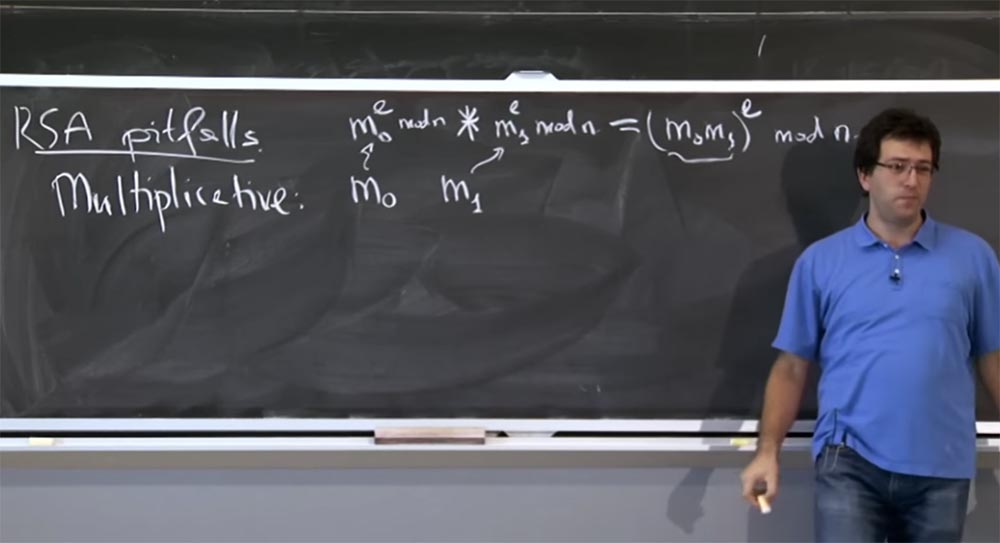 RSA pitfalls.
m₀ᵉ mod n * m₁ᵉ mod n = (m₀m₁)ᵉ mod n.
Multiplicative: m₀ m₁